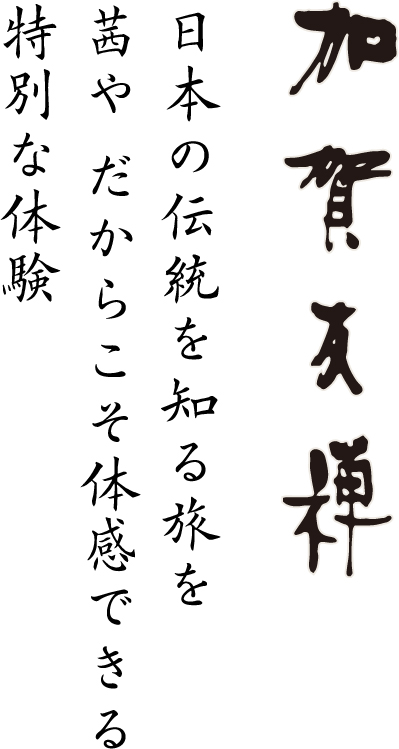 加賀友禅
日本の伝統を知る旅を
茜や だからこそ体感できる
特別な体験